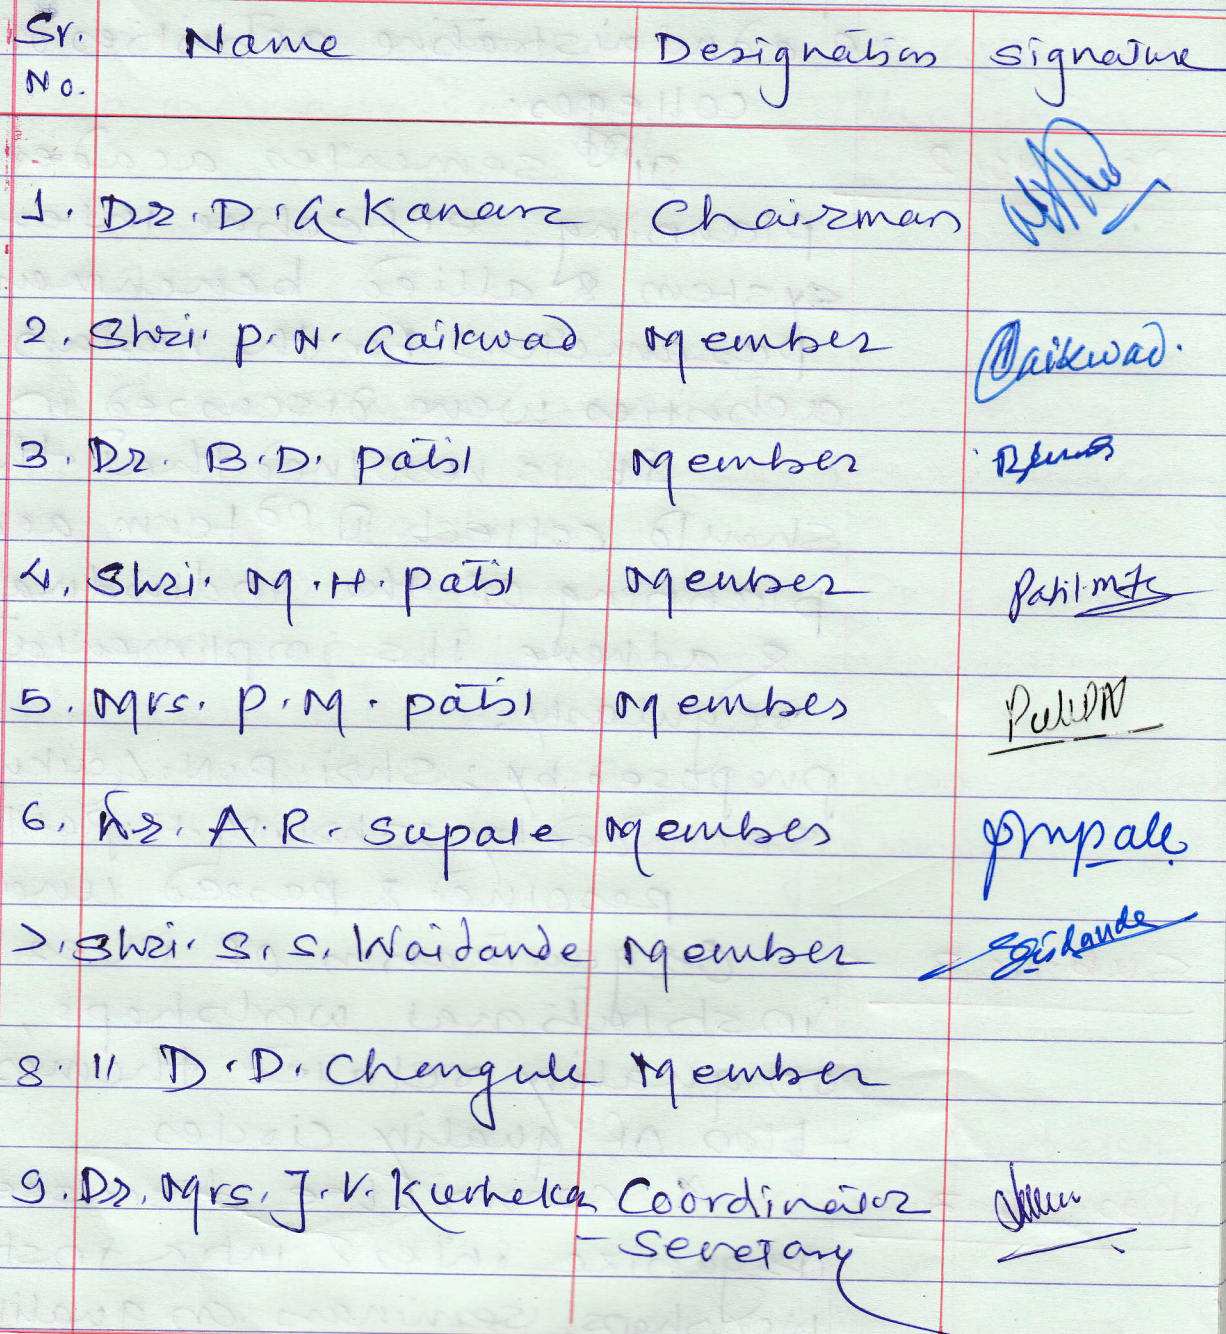 Sr. Name Designation Signature
No.
1. Dr. D. G. Kanase Chairman
2. Shri. P. N. Gaikwad Member Gaikwad.
3. Dr. B. D. Patil Member
4. Shri. M. H. Patil Member Patil
5. Mrs. P. M. Patil Member
6. Dr. A. R. Supale Member
7. Shri. S. S. Waidande Member
8. 11 D. D. Chengule Member
9. Dr. Mrs. J. V. Kurhekar Coordinator
- Secretary